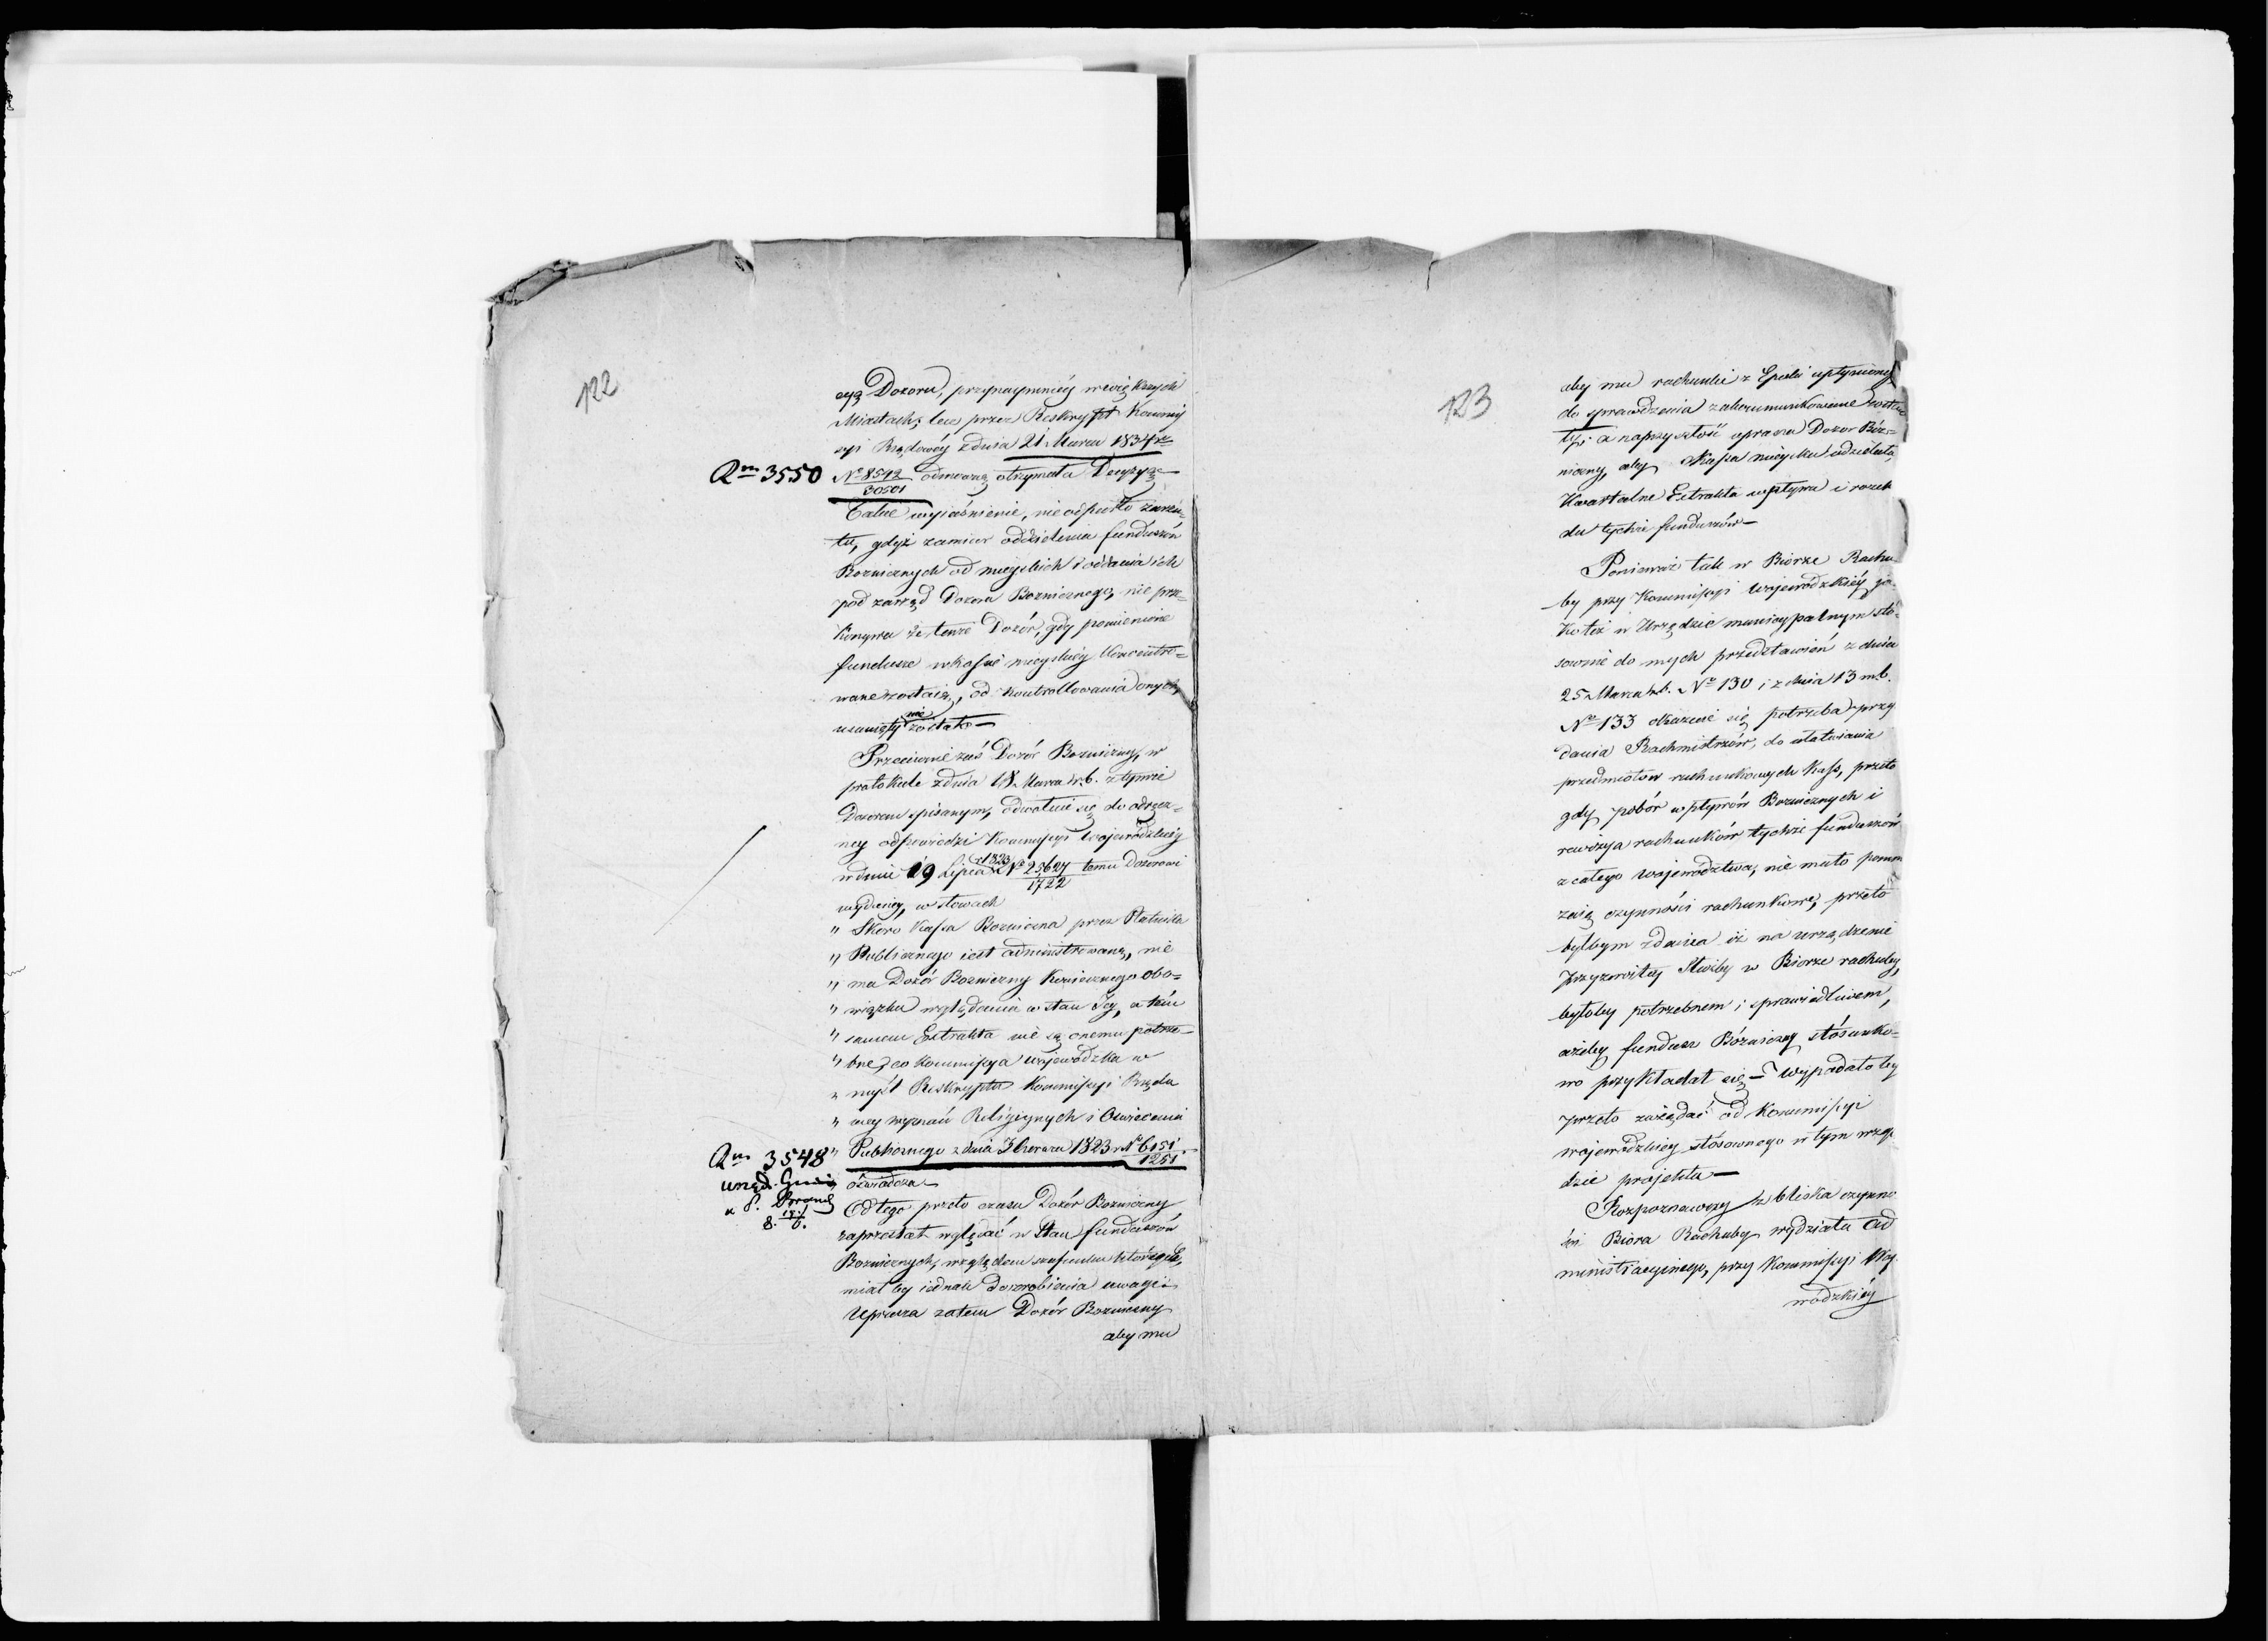 122
cyą Dozoru, przynaymniéy w więkzych
Miastach; lecz przez Reskrypt Kommis
syi Rządowéy z dnia 21 Marca 1834 r.
Qm 3550
No 8592/30501 odmowną otrzymała Decyzyą
Takie wyiaśnienie, nie odparło zarzu-
tu, gdyż zamiar oddzielenia funduszów
Bozniczych od mieyskich i oddania ich
pod zarząd Dozoru Bozniczego, nie prze-
konywa że tenże Dozór, gdy pomienione
fundusze w kassie mieyskiéy koncentro=
wane zostaią, od kontrollowania onych,
usunięty nie został —
Przeciwnie zaś Dozór Bozniczny, w
protokule z dnia 18 Marca r. b. z tymże
Dozorem spisanym, odwołuie się do odręcz=
ney odpowiedzi Kommissyi Wojewódzkiéy
w dniu 19 Lipca r 1823 No 25627/1722 temu Dozorowi
wydaney, w słowach
" Skoro Kassa Bozniczna przez
" Publicznego iest administrowaną, nie
" ma Dozór Bozniczny koniecznego obo=
" wiązku wglądania w stan Jey, a tém
" samem Extrakta nie są onemu potrze-
" bne, co Kommissya Wojewódzka w
" myśl Reskryptu Kommissyi Rządo
" wey wyznań Religiynych i Oswiecenia
Qm 3548
" Publicznego z dnia 3 Czerwca 1823 r No 6151/1251
oświadcza —
Od tego przeto czasu Dozór Bozniczny
zaprzestał wglądać w Stan funduszów
Bozniczych, względem szafunku których,
miał by iednak do zrobienia uwagi
Uprasza zatem Dozór Bozniczny
aby mu
123
aby mu rachunki z Epoki upłynioney
do sprawdzenia zakommunikowane zosta
ły: a na przyszłość uprasza Dozor Bóz=
niczny, aby Kassa mieyska udzielała,
Kwartalne Extrakta wpływu i rozch
du tychże funduszów —
Ponieważ tak w Biorze Rachu
by przy Kommissyi Wojewódzkiéy ja-
ko też w Urzędzie municypalnym sto-
sownie do mych przedstawień z dnia
25 Marca r. b. No 130 i z dnia 13 m. b.
No 133 okazuie się potrzeba przy
dania Rachmistrzów, do ułatwiania
przedmiotów rachunkowych Kass, przeto
gdy pobór wpływów Bozniczych i
rewizya rachunków tychże funduszów
z całego Województwa, nie mało pomna
żaią czynności rachunkowe, przeto
byłbym zdania iż na urządzenie
przyzwoitey Służby w Biorze rachuby,
byłoby potrzebnem i sprawiedliwem,
ażeby fundusz Bózniczny stósunko=
wo przykładał się — Wypadało by
przeto zażądać od Kommissyi
wojewódzkiey stósownego w tym wzglę
dzie projektu —
Rozpoznawszy z bliska czynno
ści Biora Rachuby wydziału Ad
ministracyinego, przy Kommissyi Woj
wódzkiéy